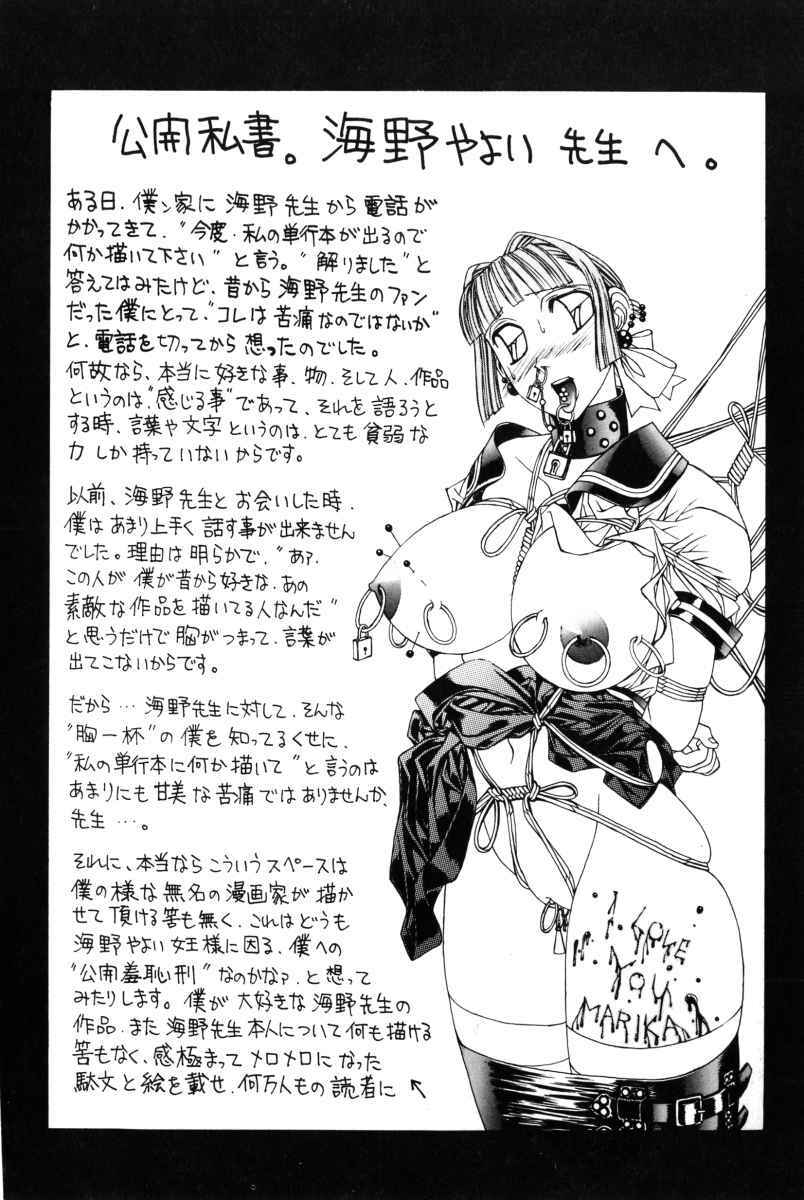 公開私書。海野やよい 先生 へ。
ある日、僕ン家に 海野先生から電話が
かかってきて、“今度、私の単行本が出るので
何か描いて下さい” と言う。“解りました”と
答えてはみたけど、昔から海野先生のファン
だった僕にとって、“コレは苦痛なのではないか”
と、電話を切ってから想ったのでした。
何故なら、本当に好きな事、物、そして人、作品
というのは“感じる事”であって、それを語ろうと
する時、言葉や文字というのは、とても貧弱な
力しか持っていないからです。
以前、海野先生とお会いした時、
僕はあまり上手く話す事が出来ません
でした。理由は明らかで、“あァ、
この人が僕が昔から好きな、あの
素敵な作品を描いてる人なんだ”
と思うだけで胸がつまって、言葉が
出てこないからです。
だから…海野先生に対して、そんな
“胸一杯”の僕を知ってるくせに、
“私の単行本に何か描いて”と言うのは
あまりにも甘美な苦痛ではありませんか、
先生…。
それに、本当ならこういうスペースは
僕の様な無名の漫画家が描か
せて頂ける筈も無く、これはどうも
海野やよい女王様に因る、僕への
“公開羞恥刑”なのかなァ、と想って
みたりします。僕が大好きな海野先生の
作品、また海野先生本人について何も描ける
筈もなく、感極まってメロメロになった
駄文と絵を載せ、何万人もの読者に ↖
I LOVE
YOU
MARIKA